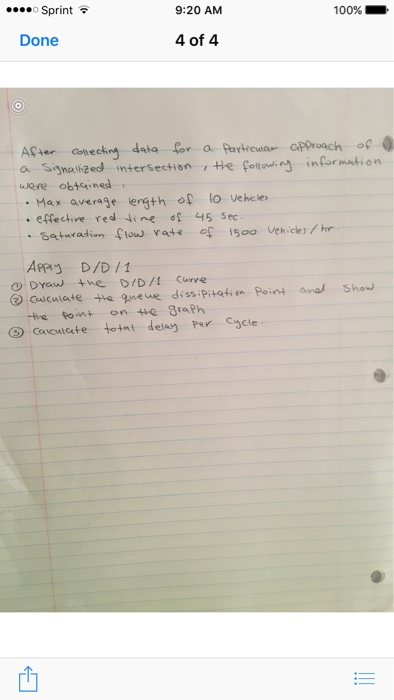 Sprint 9:20 AM 100%
Done 4 of 4
After collecting data for a Particular approach of
a signallized intersection, the following information
were obtained.
• Max average length of 10 vehecles
• effective red time of 45 sec.
• Saturation flow rate of 1500 vehicles/hr
Apply D/D/1
① Draw the D/D/1 curve
② Calculate the queue dissipitation Point and show
the Point on the graph
③ Calculate total delay per cycle.